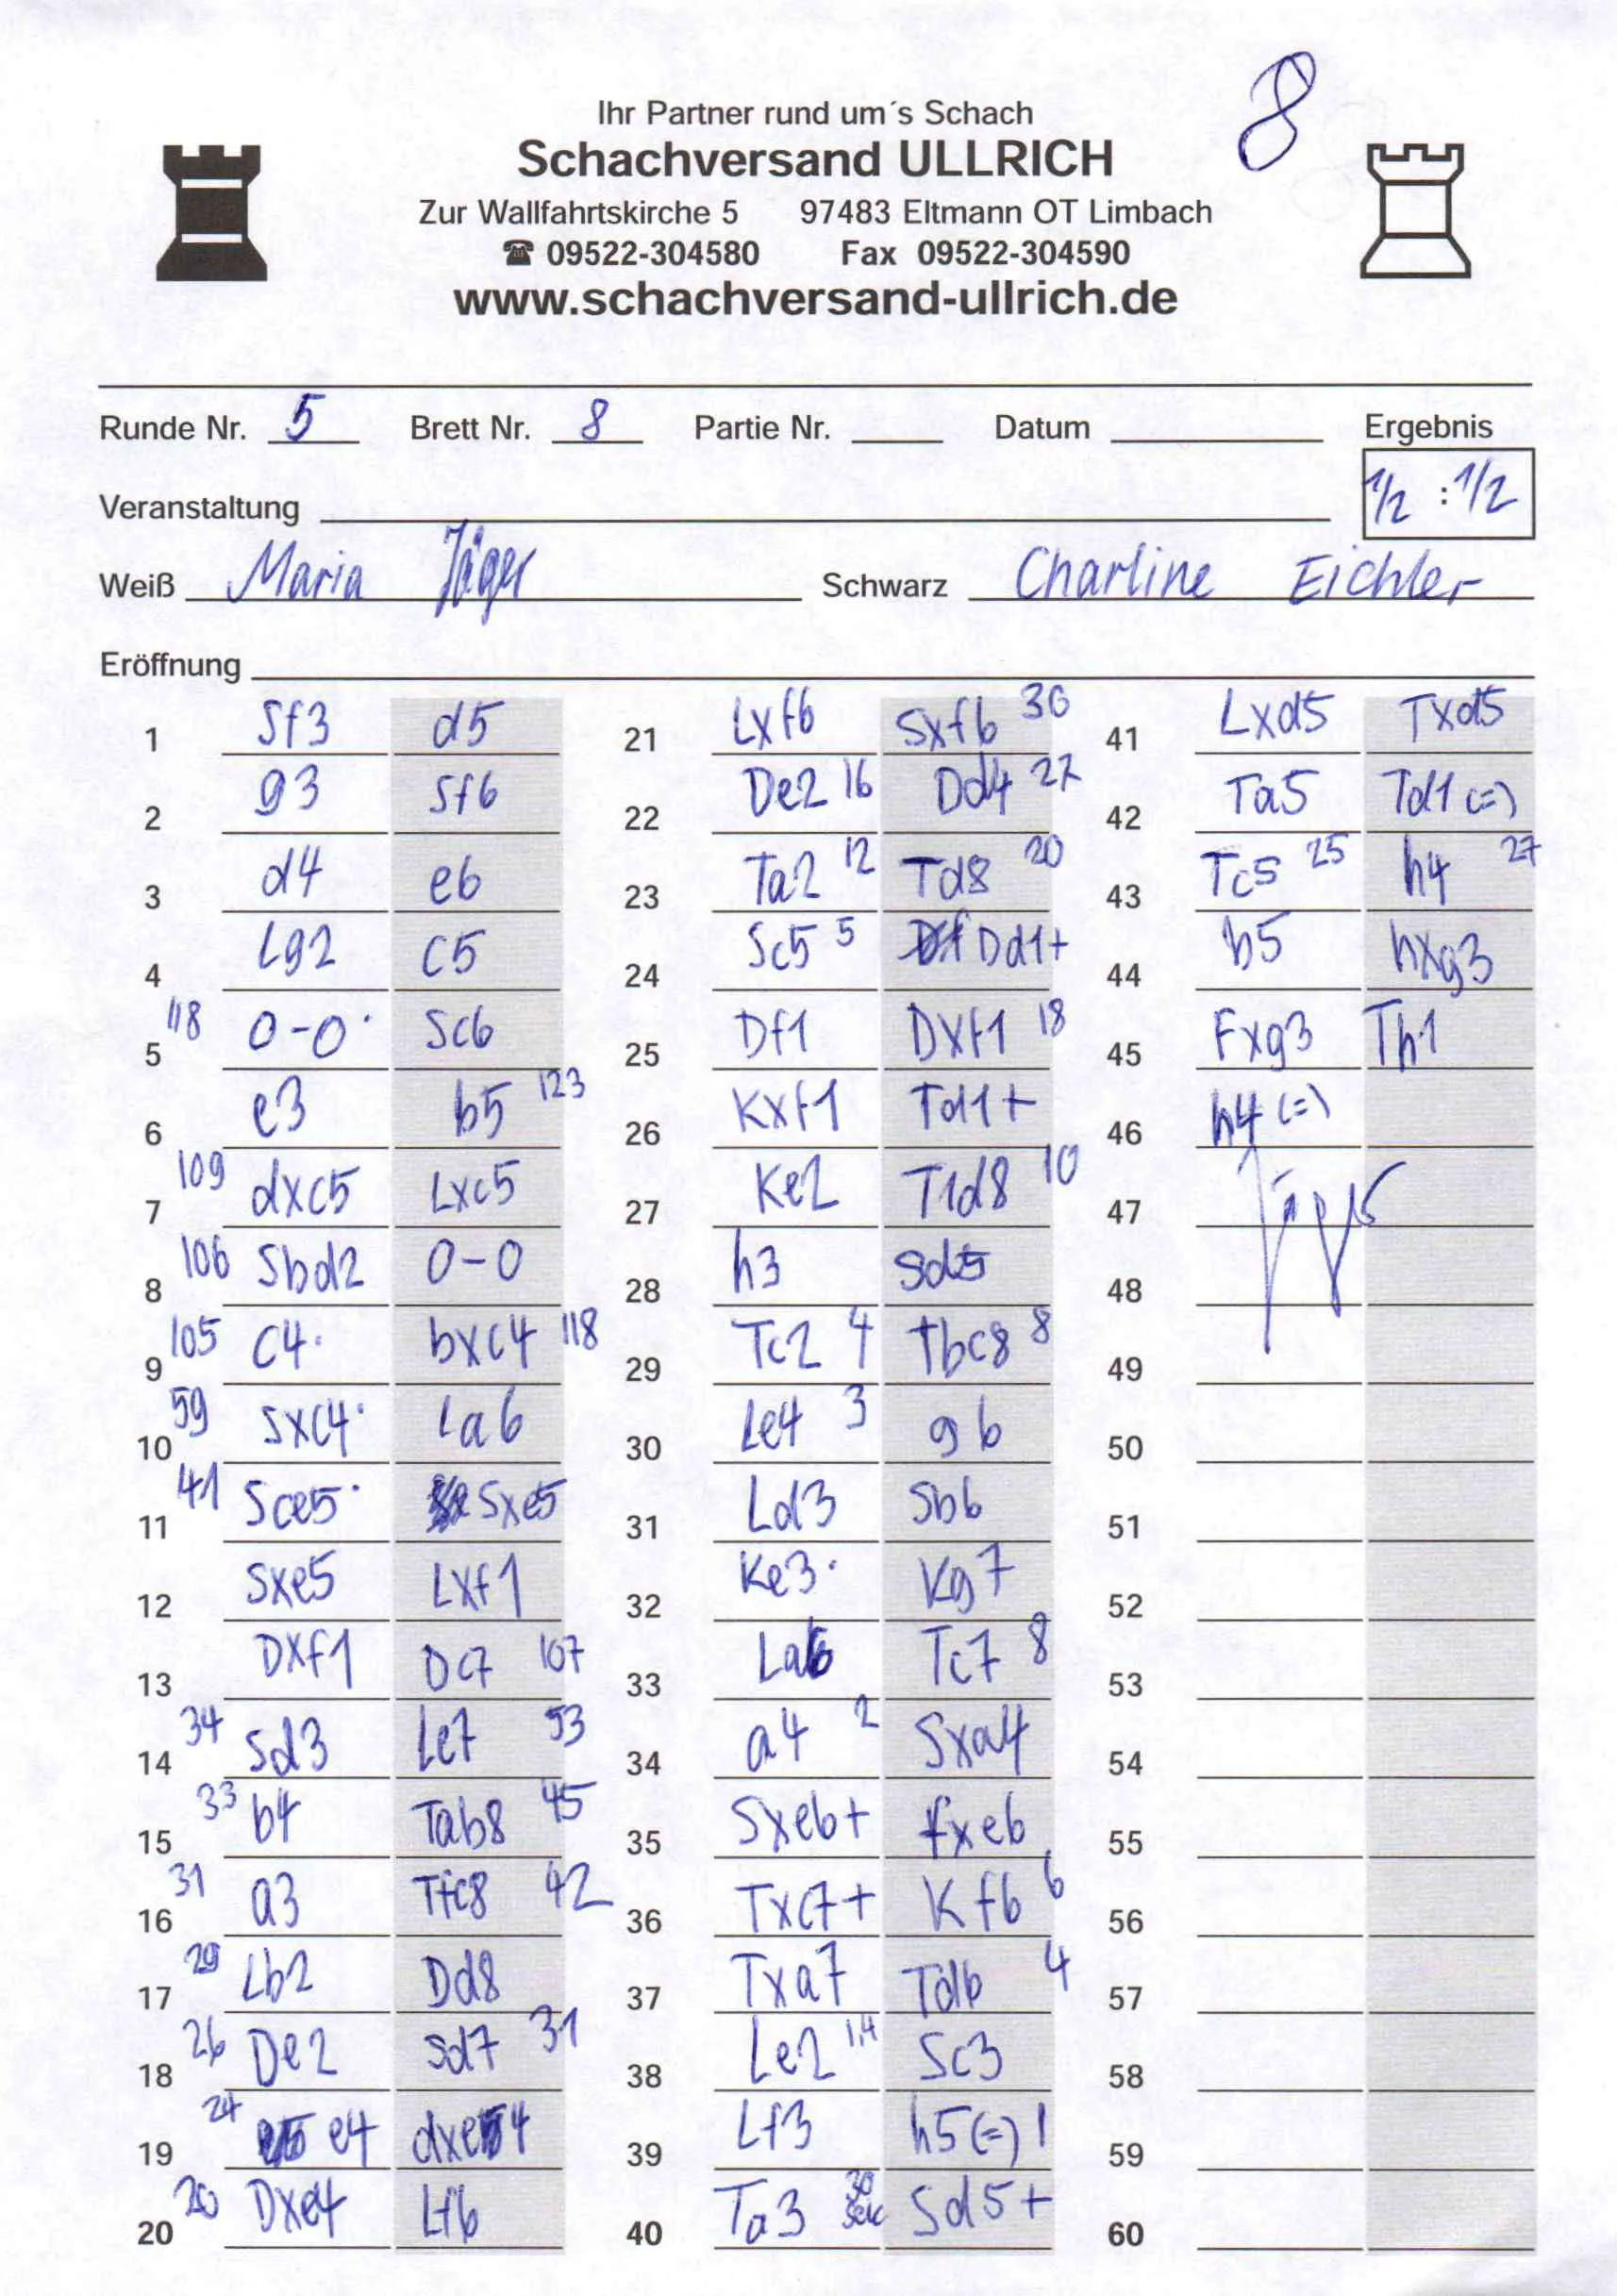 8
Ihr Partner rund um´s Schach
Schachversand ULLRICH
Zur Wallfahrtskirche 5 97483 Eltmann OT Limbach
☎ 09522-304580 Fax 09522-304590
www.schachversand-ullrich.de
Runde Nr. 5 Brett Nr. 8 Partie Nr. Datum Ergebnis
1/2 : 1/2
Veranstaltung
Weiß Maria Jäger Schwarz Charline Eichler
Eröffnung
1 Sf3 d5 21 Lxf6 Sxf6 30 41 Lxd5 Txd5
2 g3 Sf6 22 De2 16 Dd4 27 42 Ta5 Td1 (=)
3 d4 e6 23 Ta2 12 Td8 20 43 Tc5 25 h4 27
4 Lg2 c5 24 Sc5 5 Dd1+ 44 b5 hxg3
5 118 0-0 Sc6 25 Df1 Dxf1 18 45 Fxg3 Th1
6 e3 b5 123 26 Kxf1 Td1+ 46 h4 (=)
7 109 dxc5 Lxc5 27 Ke2 T1d8 10 47
8 106 Sbd2 0-0 28 h3 Sd5 48
9 105 c4 bxc4 118 29 Tc2 4 Tbc8 8 49
10 59 Sxc4 La6 30 Le4 3 g6 50
11 41 Sce5 Sxe5 31 Ld3 Sb6 51
12 Sxe5 Lxf1 32 Ke3 Kg7 52
13 Dxf1 Dc7 107 33 La6 Tc7 8 53
14 34 Sd3 Le7 53 34 a4 2 Sxa4 54
15 33 b4 Tab8 45 35 Sxe6+ fxe6 55
16 31 a3 Tfc8 42 36 Txc7+ Kf6 6 56
17 29 Lb2 Dd8 37 Txa7 Td6 4 57
18 26 De2 Sd7 31 38 Le2 1,4 Sc3 58
19 24 e4 dxe4 39 Lf3 h5 (=) 1 59
20 20 Dxe4 Lf6 40 Ta3 30 Sek Sd5+ 60